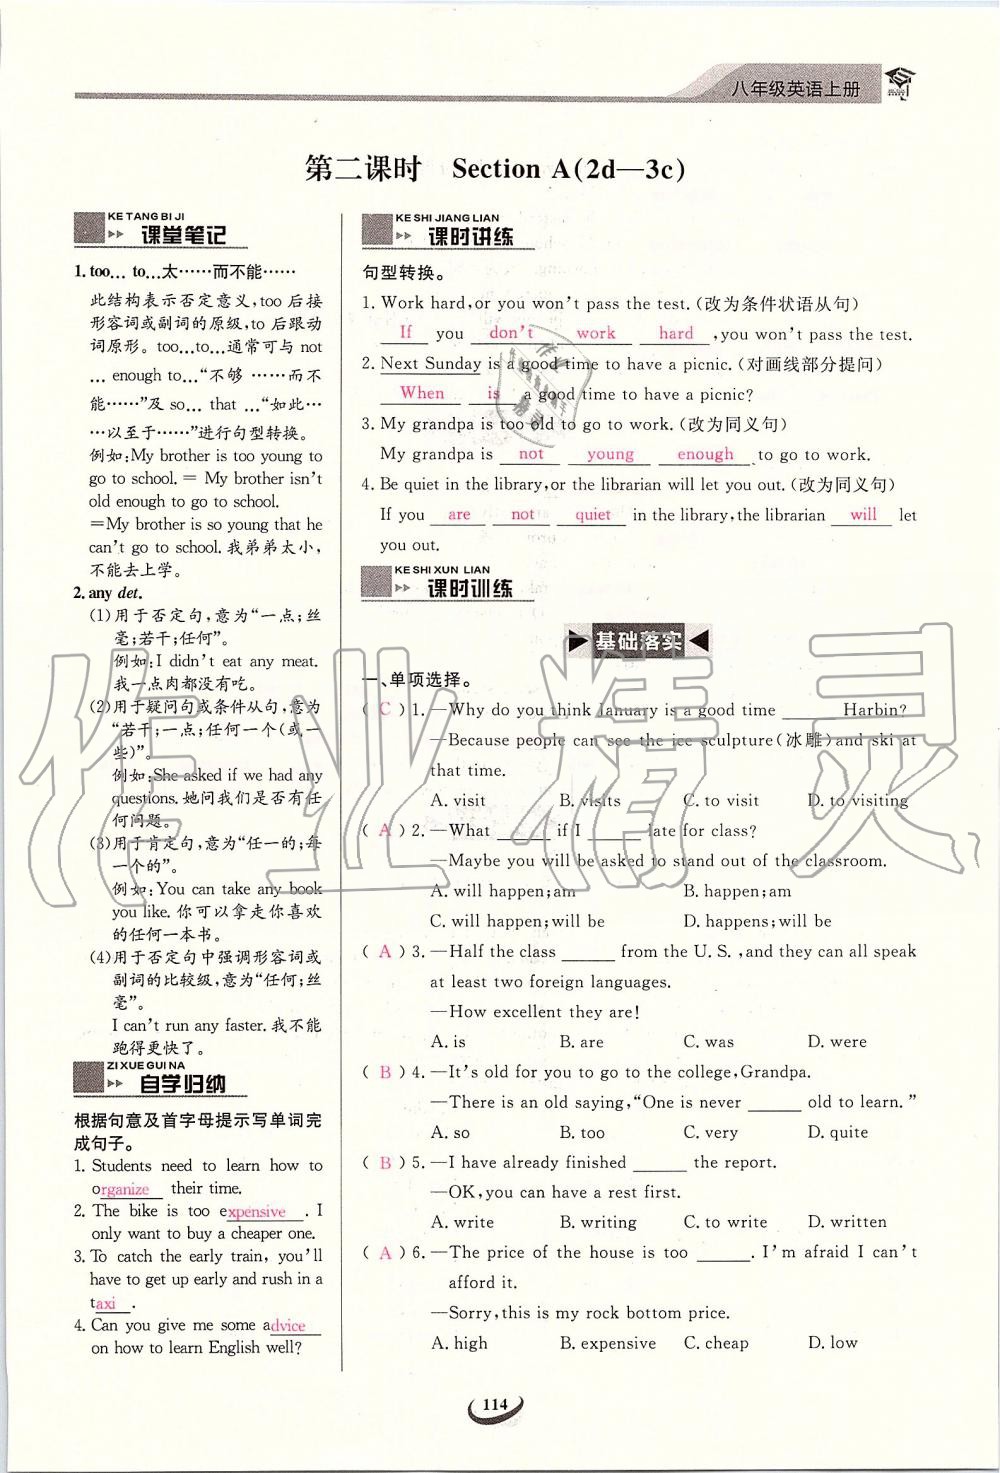 八年级英语上册
第二课时 Section A(2d—3c)
KE TANG BI JI
课堂笔记
1. too… to…太……而不能……
此结构表示否定意义,too 后接
形容词或副词的原级,to 后跟动
词原形。too…to…通常可与 not
… enough to…“不够 ……而不
能……”及 so… that …“如此…
…以至于……”进行句型转换。
例如:My brother is too young to
go to school. = My brother isn't
old enough to go to school.
=My brother is so young that he
can't go to school. 我弟弟太小,
不能去上学。
2. any det.
(1)用于否定句,意为“一点;丝
毫;若干;任何”。
例如:I didn't eat any meat.
我一点肉都没有吃。
(2)用于疑问句或条件从句,意为
“若干;一点;任何一个(或一
些)”。
例如:She asked if we had any
questions. 她问我们是否有任
何问题。
(3)用于肯定句,意为“任一的;每
一个的”。
例如:You can take any book
you like. 你可以拿走你喜欢
的任何一本书。
(4)用于否定句中强调形容词或
副词的比较级,意为“任何;丝
毫”。
I can't run any faster. 我不能
跑得更快了。
ZI XUE GUI NA
自学归纳
根据句意及首字母提示写单词完
成句子。
1. Students need to learn how to
organize their time.
2. The bike is too expensive. I
only want to buy a cheaper one.
3. To catch the early train, you'll
have to get up early and rush in a
taxi.
4. Can you give me some advice
on how to learn English well?
KE SHI JIANG LIAN
课时讲练
句型转换。
1. Work hard, or you won't pass the test. (改为条件状语从句)
If you don't work hard, you won't pass the test.
2. Next Sunday is a good time to have a picnic. (对画线部分提问)
When is a good time to have a picnic?
3. My grandpa is too old to go to work. (改为同义句)
My grandpa is not young enough to go to work.
4. Be quiet in the library, or the librarian will let you out. (改为同义句)
If you are not quiet in the library, the librarian will let
you out.
KE SHI XUN LIAN
课时训练
基础落实
一、单项选择。
( C )1. —Why do you think January is a good time ______ Harbin?
—Because people can see the ice sculpture(冰雕)and ski at
that time.
A. visit B. visits C. to visit D. to visiting
( A )2. —What ______ if I ______ late for class?
—Maybe you will be asked to stand out of the classroom.
A. will happen; am B. happen; am
C. will happen; will be D. happens; will be
( A )3. —Half the class ______ from the U. S. , and they can all speak
at least two foreign languages.
—How excellent they are!
A. is B. are C. was D. were
( B )4. —It's old for you to go to the college, Grandpa.
—There is an old saying, “One is never ______ old to learn. ”
A. so B. too C. very D. quite
( B )5. —I have already finished ______ the report.
—OK, you can have a rest first.
A. write B. writing C. to write D. written
( A )6. —The price of the house is too ______. I'm afraid I can't
afford it.
—Sorry, this is my rock bottom price.
A. high B. expensive C. cheap D. low
114
作业精灵